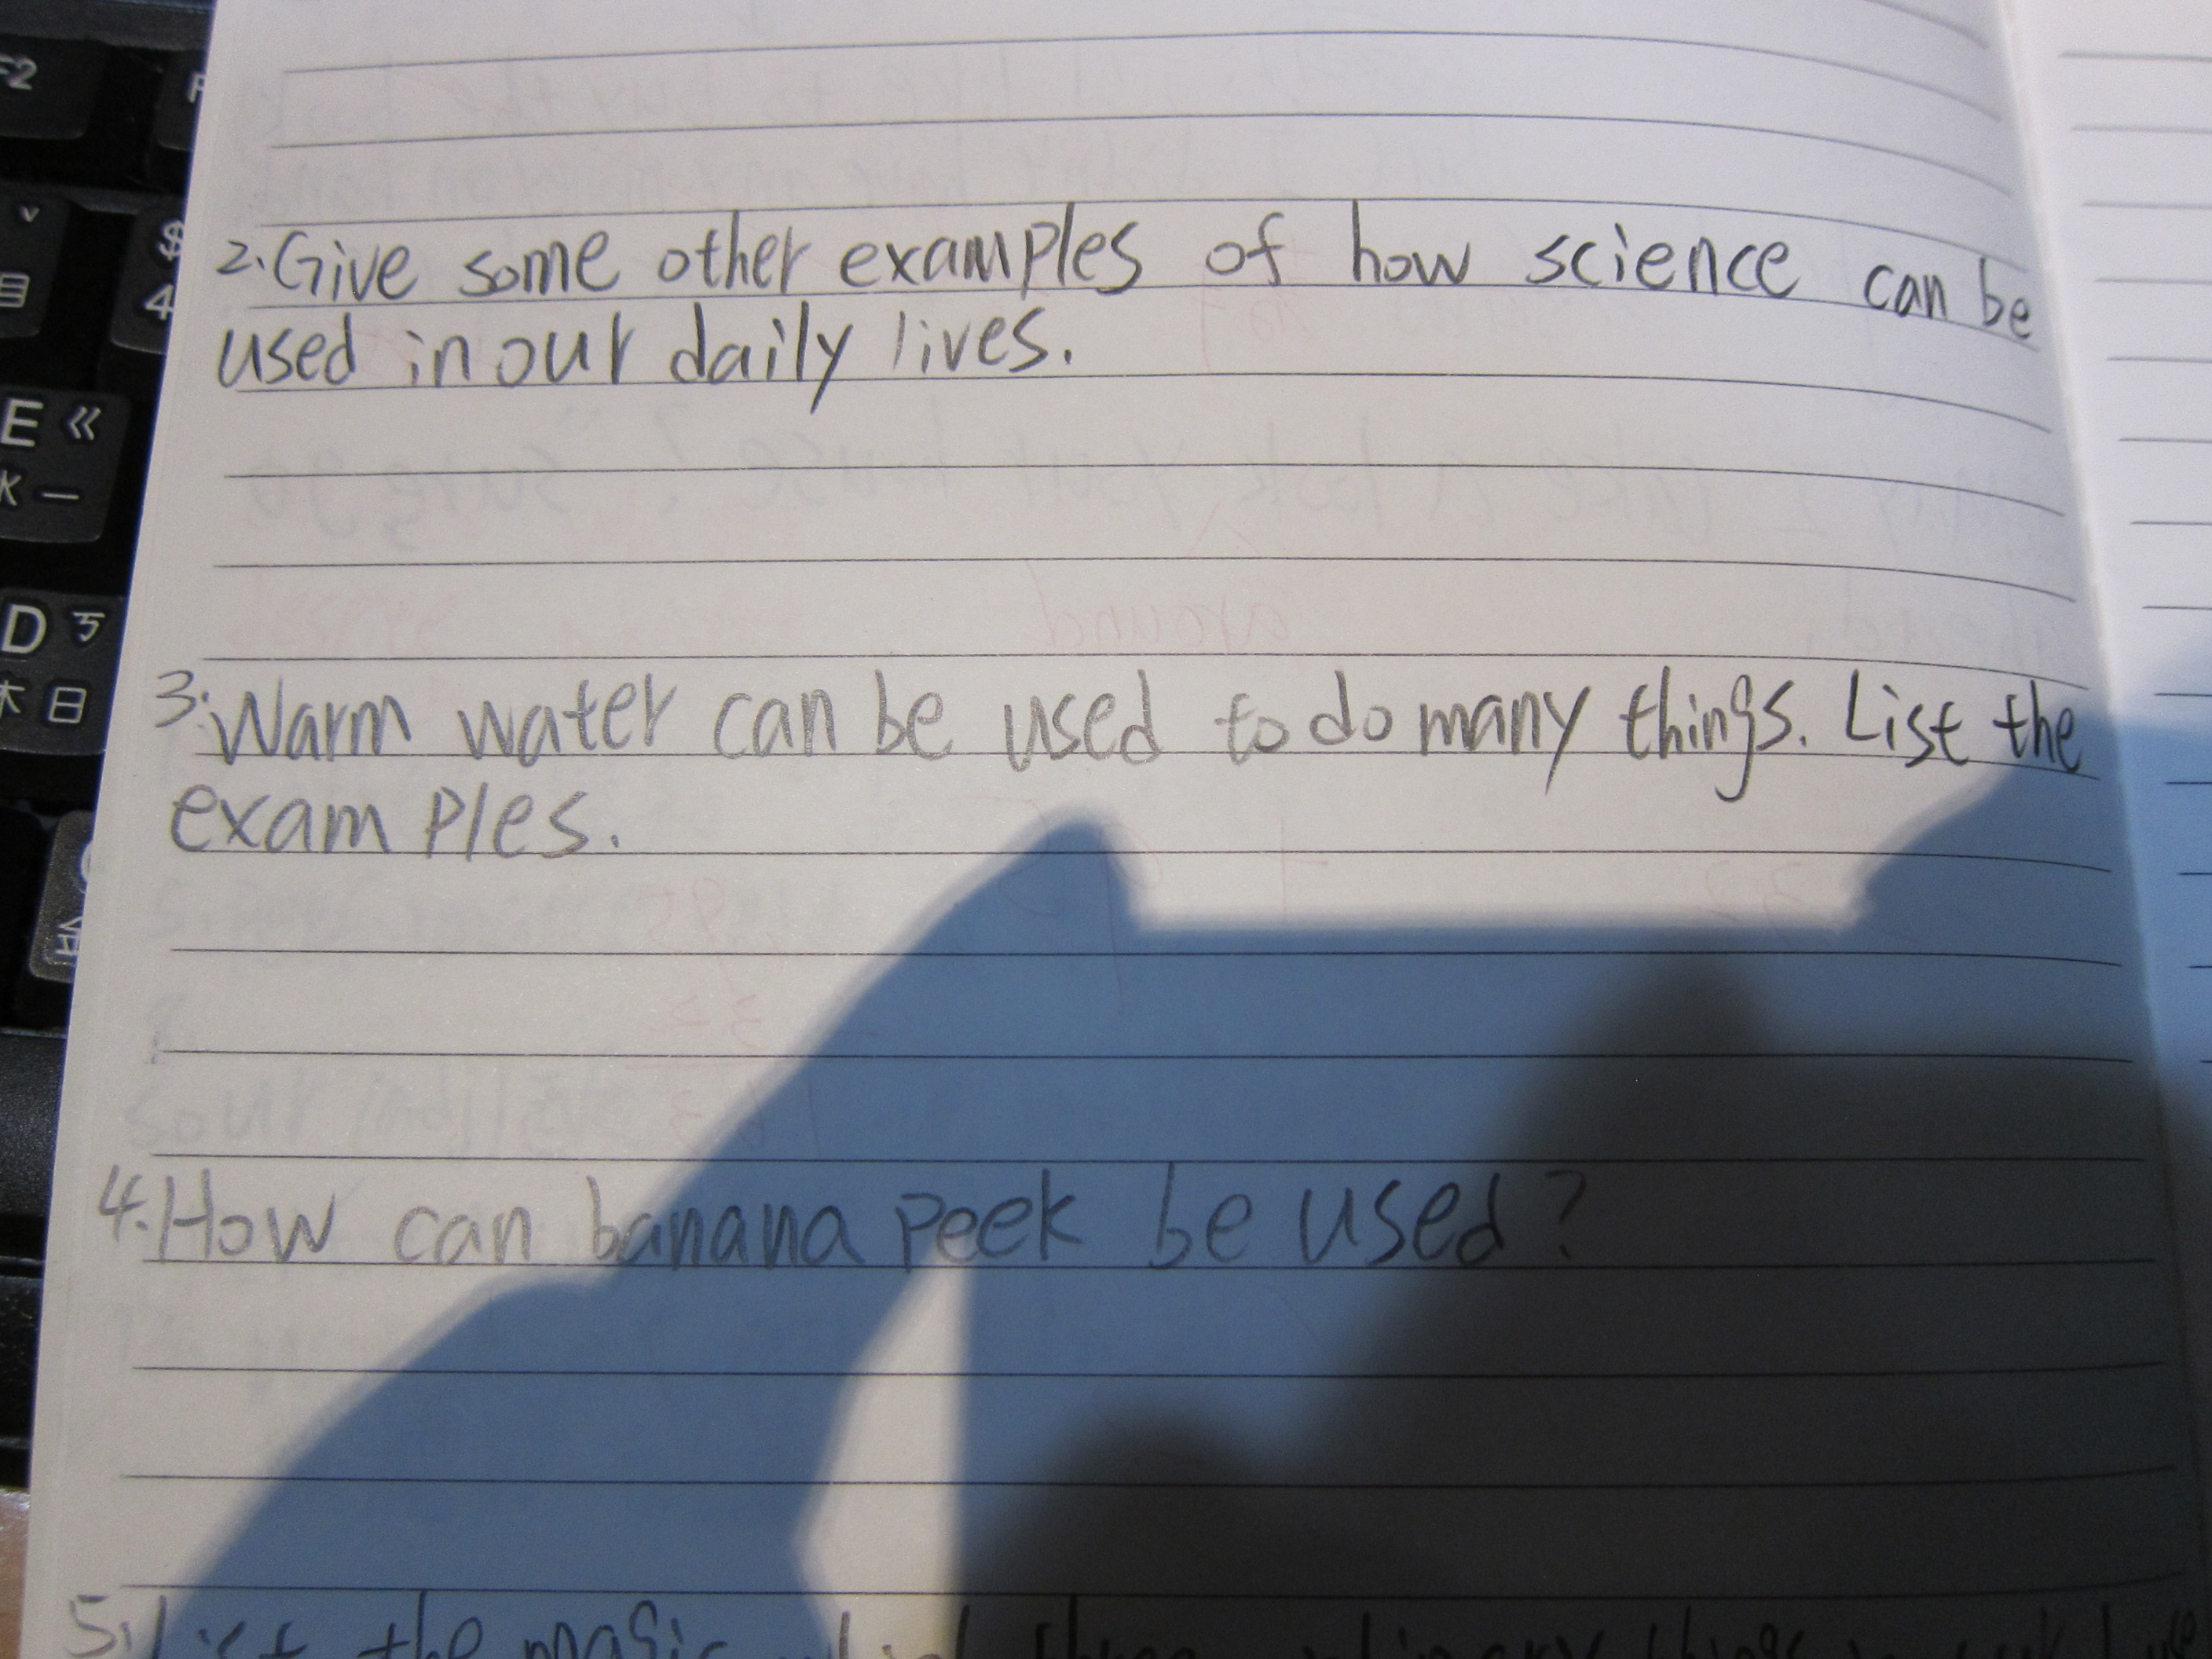 F2
$
4
E ㄍ
水 一
D ㄎ
木 日
2. Give some other examples of how science can be
used in our daily lives.
3. Warm water can be used to do many things. List the
examples.
4. How can banana peek be used?
5. List the magic three ordinary things